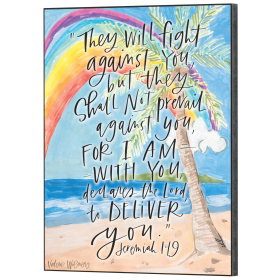 "They will fight
against you,
but they
Shall Not prevail
against you,
FOR I AM
WITH YOU,
declares the Lord,
to DELIVER
you."
Jeremiah 1:19